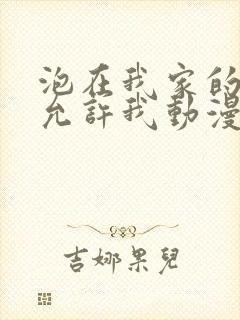 泡在我家的
允許我動漫
吉娜果兒